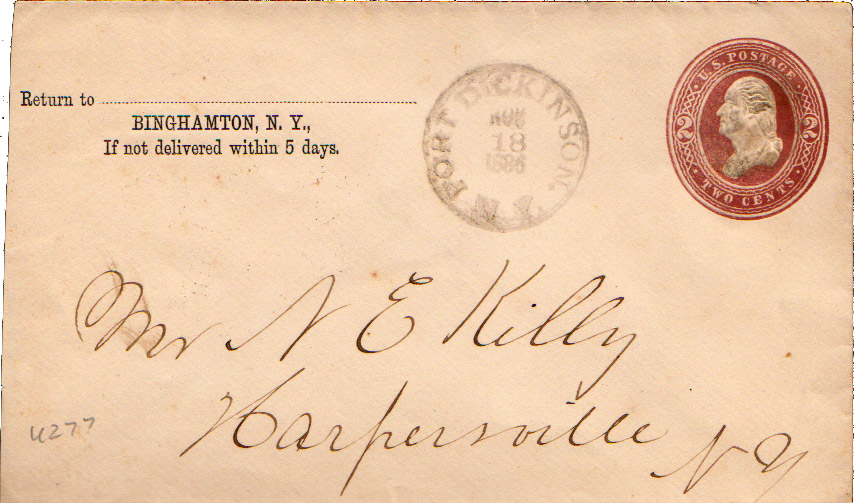 Return to
BINGHAMTON, N. Y.,
If not delivered within 5 days.
PORT DICKINSON.
NOV
18
1886
N. Y.
U.S. POSTAGE
2 2
TWO CENTS
Mr N E Killy
Harpersville
N Y
U277